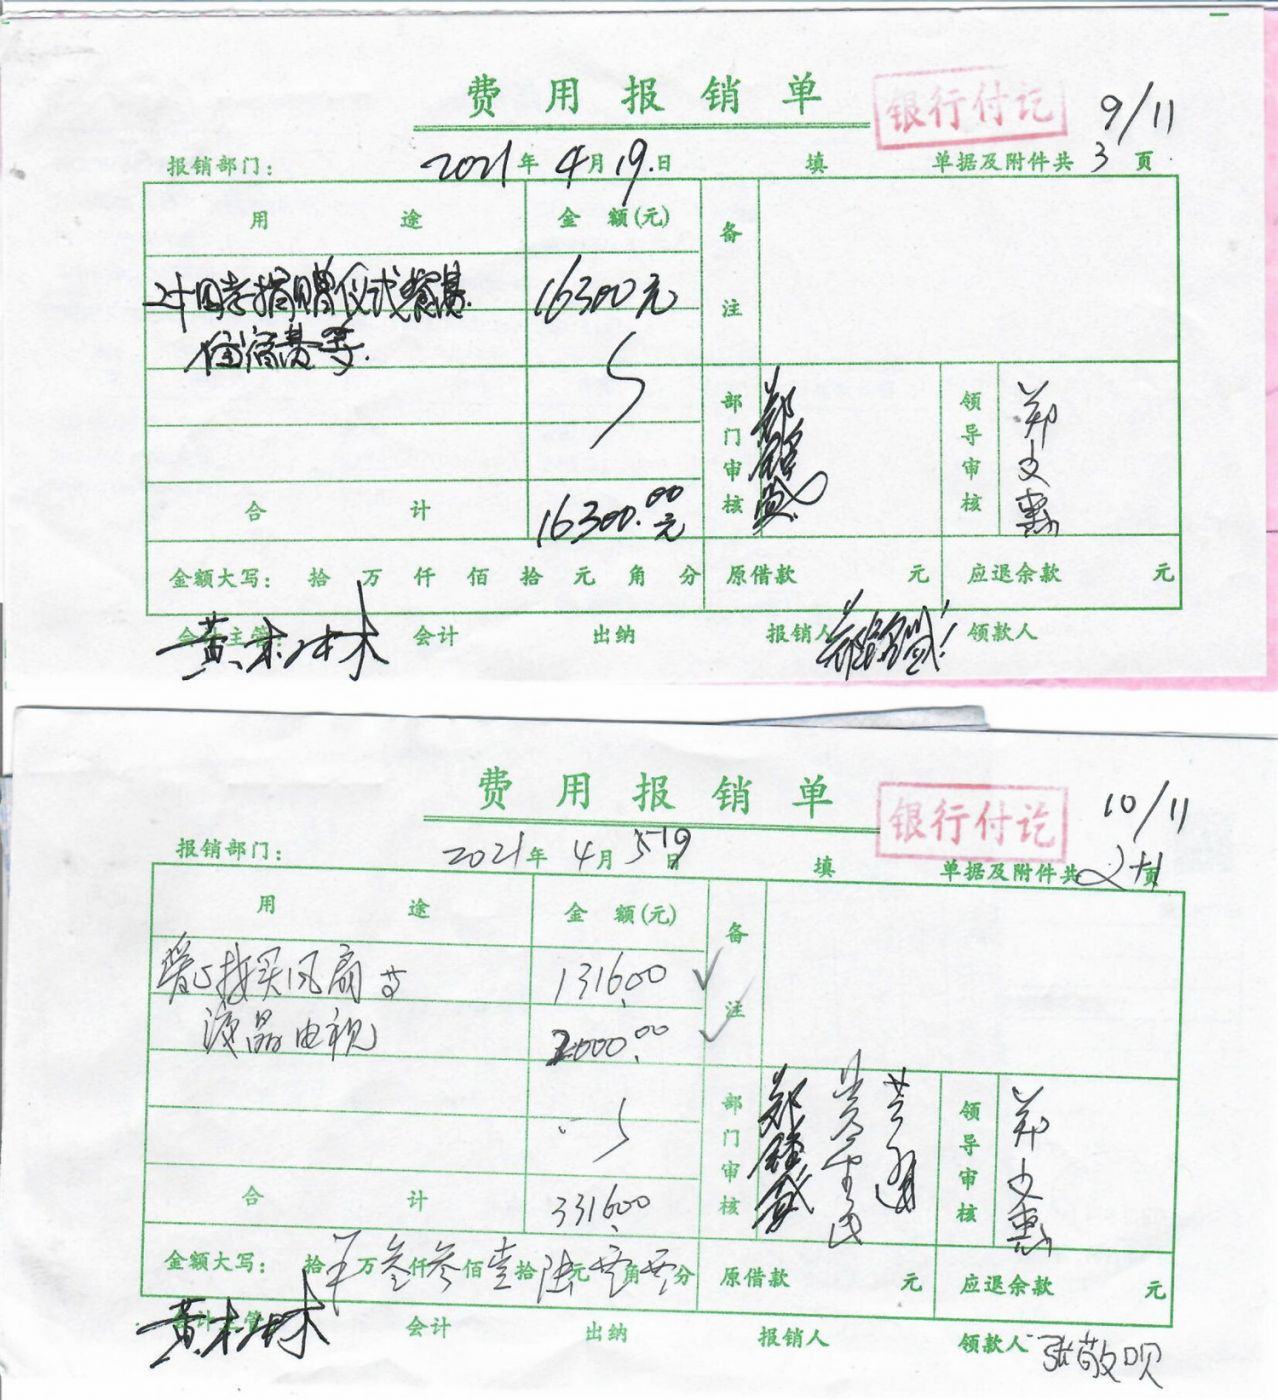 费用报销单
银行付讫
9/11
报销部门: 2021年4月19日 填 单据及附件共3页
用途 金额(元) 备注
二十四孝捐赠仪式餐费 16300元
住宿费等.
部门审核 领导审核 郑文惠
合计 16300.00元
金额大写: 拾 万 仟 佰 拾 元 角 分 原借款 元 应退余款 元
会计主管: 黄木林 会计 出纳 报销人 领款人
费用报销单
银行付讫
10/11
报销部门: 2021年4月日 填 单据及附件共2页
用途 金额(元) 备注
爱心接买风扇等 1316.00
液晶电视 2000.00
部门审核 领导审核 郑文惠
合计 3316.00
金额大写: 拾 万叁仟叁佰壹拾陆元零角零分 原借款 元 应退余款 元
会计主管 黄木林 会计 出纳 报销人 领款人 张敬